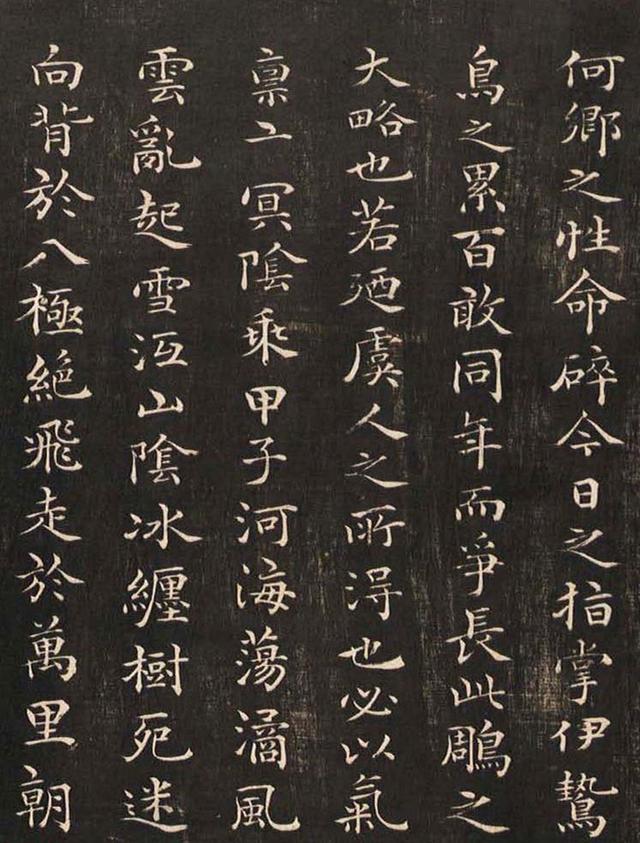 何鄉之性命碎今日之指掌伊鷙
鳥之累百敢同年而爭長此鵰之
大略也若廼虞人之所得也必以氣
稟玄冥陰乘甲子河海蕩潏風
雲亂起雪沍山陰冰纏樹死迷
向背於八極絕飛走於萬里朝